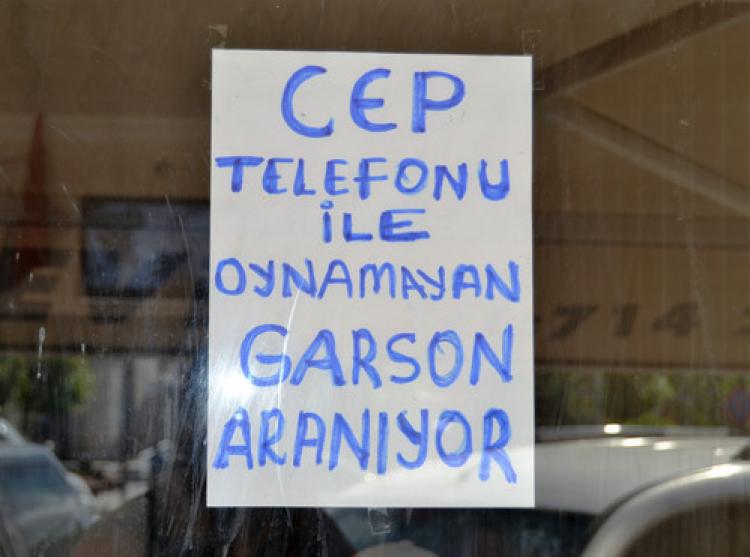 CEP
TELEFONU
İLE
OYNAMAYAN
GARSON
ARANIYOR
714